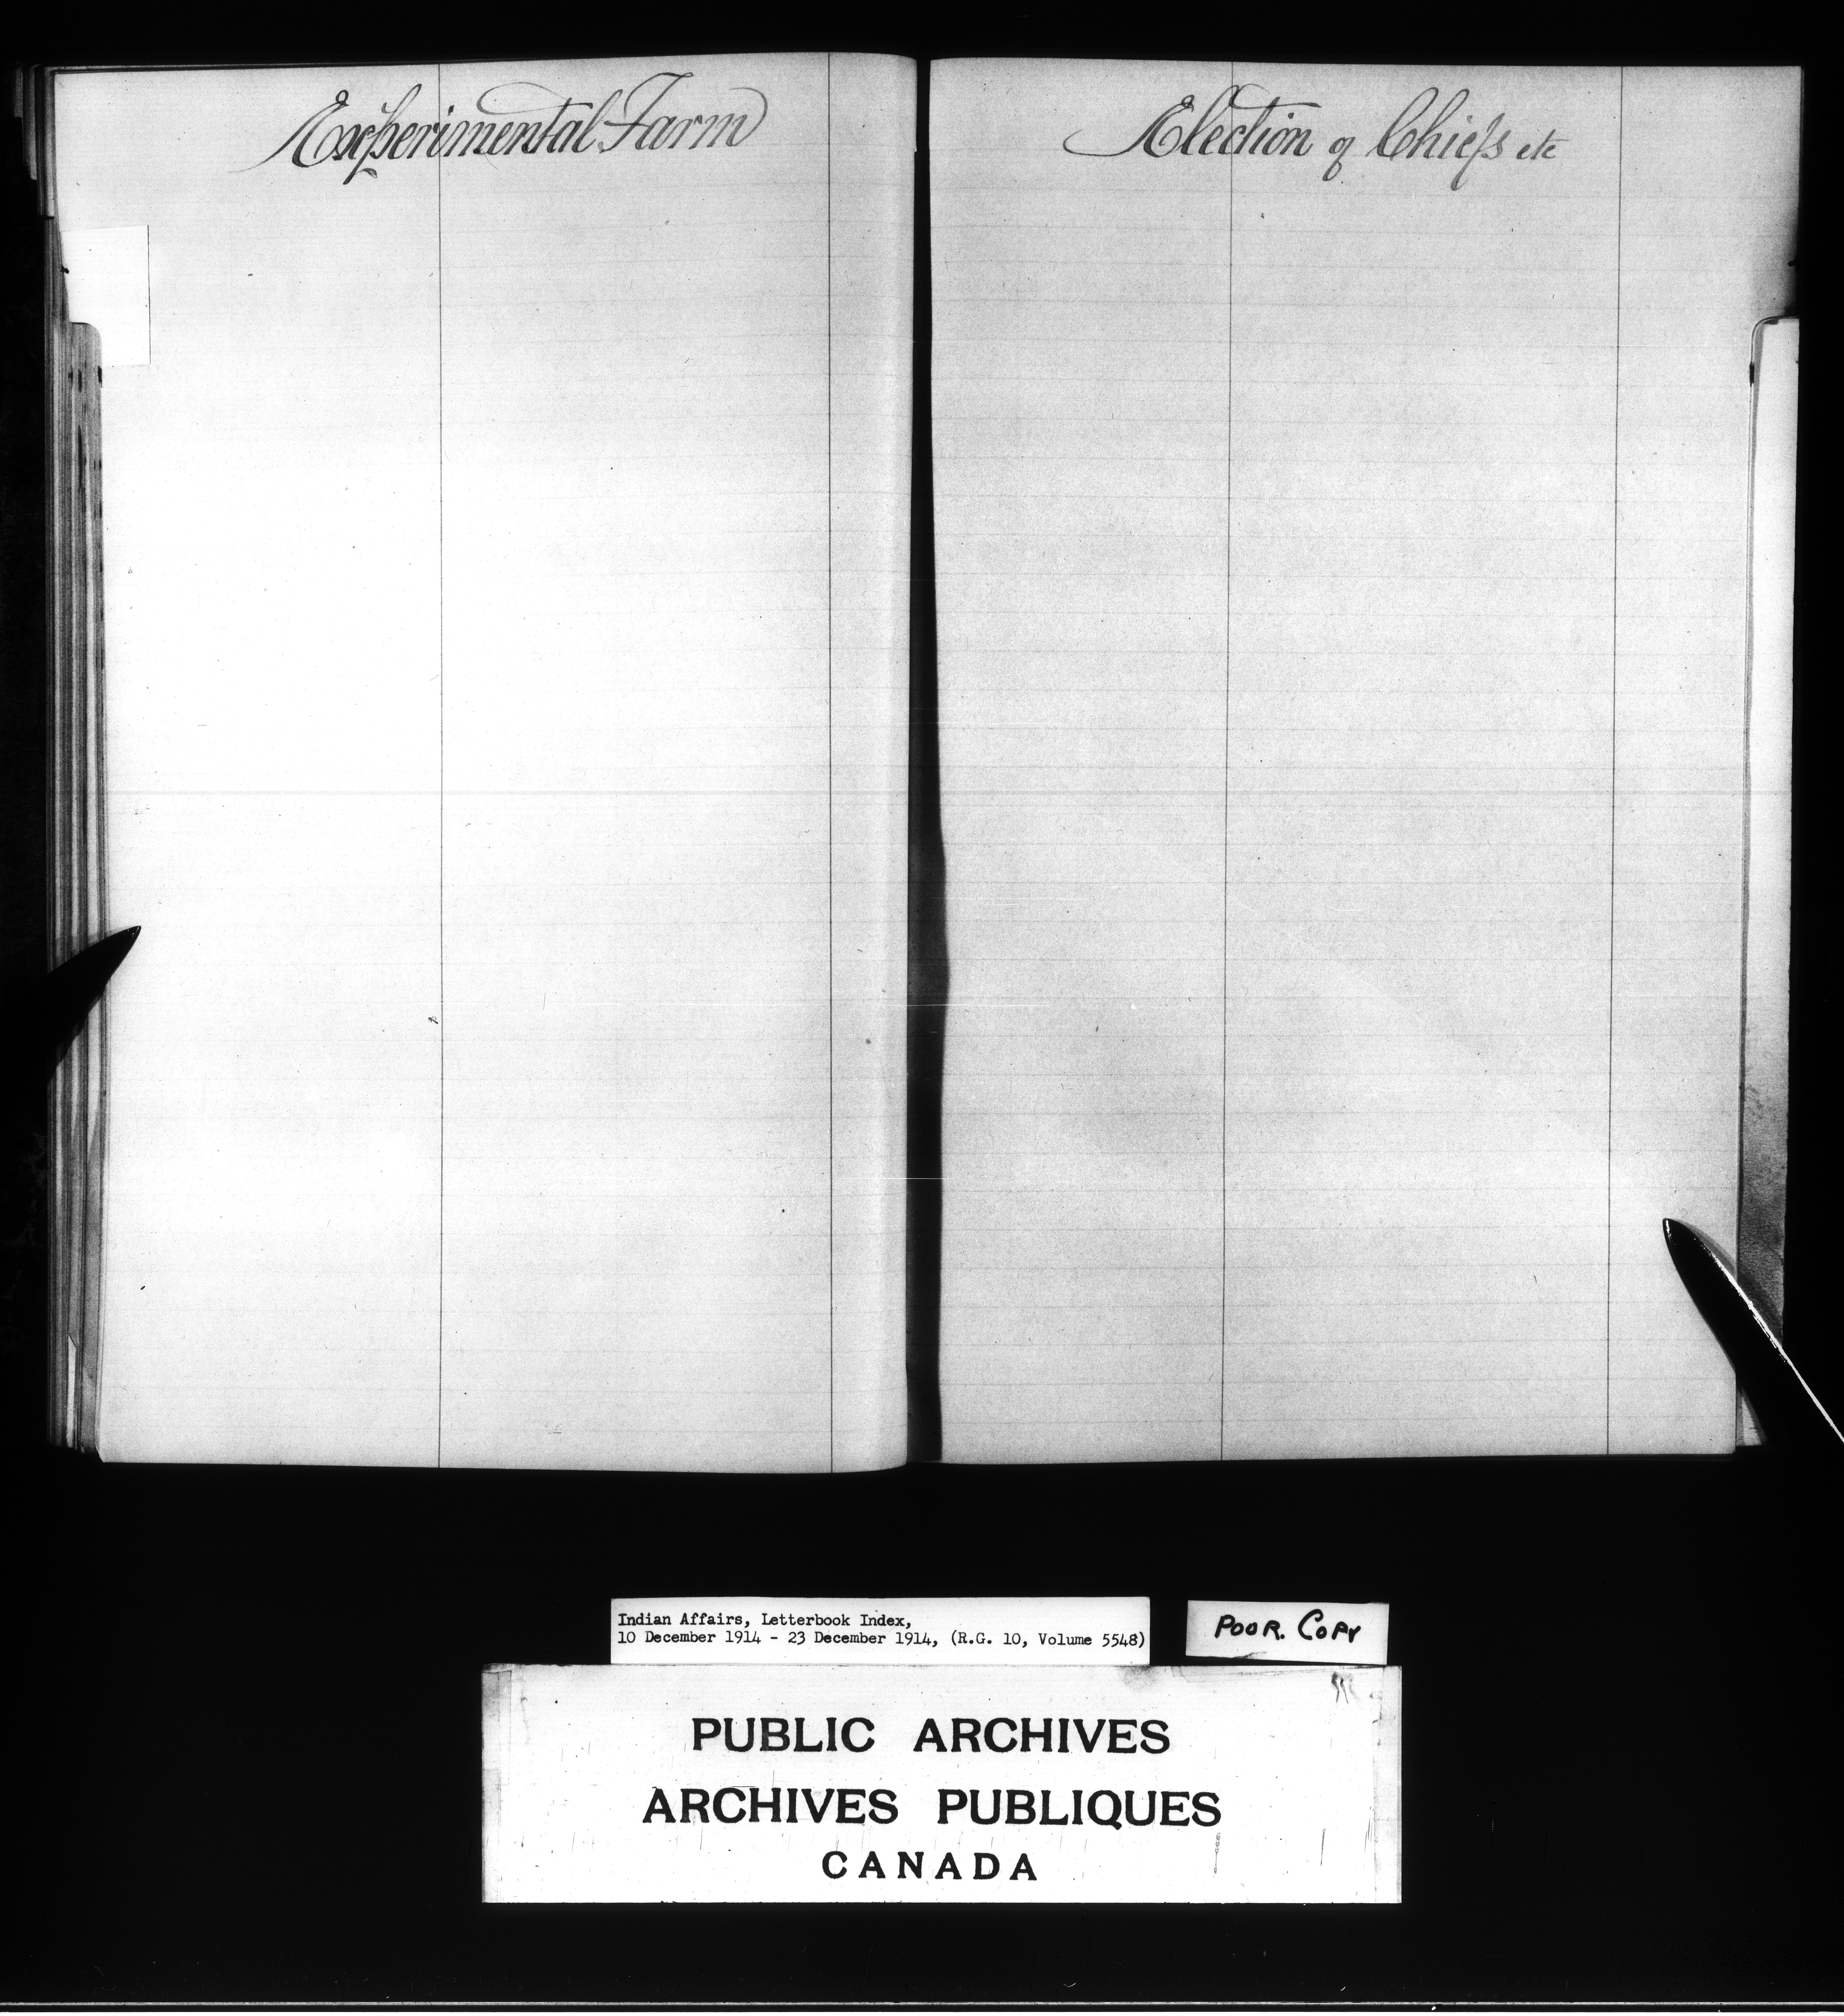 Experimental Farm
Election of Chiefs etc
Indian Affairs, Letterbook Index,
10 December 1914 - 23 December 1914, (R.G. 10, Volume 5548)
POOR. COPY
PUBLIC ARCHIVES
ARCHIVES PUBLIQUES
CANADA